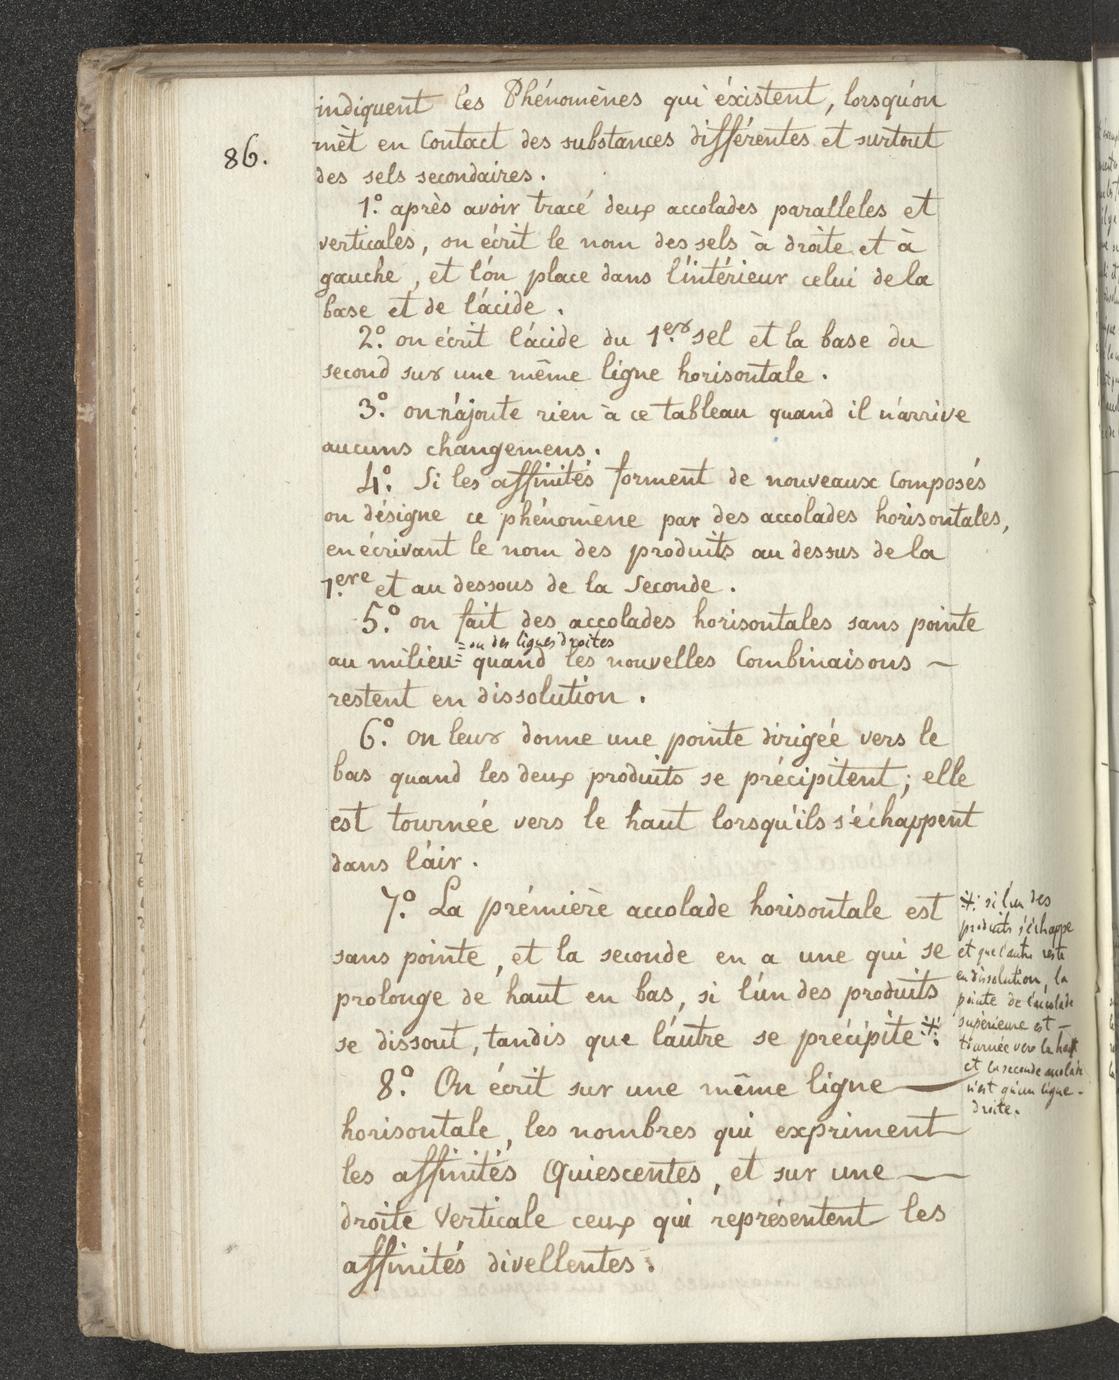 86.
indiquent les Phénomènes qui éxistent, lorsqu'on
mèt en Contact des substances différentes et surtout
des sels secondaires.
1.° après avoir tracé deux accolades paralleles et
verticales, on écrit le nom des sels à droite et à
gauche, et l'on place dans l'intérieur celui de la
base et de l'ácide.
2.° on écrit l'ácide du 1.er sel et la base du
second sur une même ligne horisontale.
3.° on n'ajoute rien à ce tableau quand il n'arrive
aucuns changemens.
4.° Si les affinités forment de nouveaux Composés
on désigne ce phénomène par des accolades horisontales,
en écrivant le nom des produits au dessus de la
1.ere et au dessous de la Seconde.
5.° on fait des accolades horisontales sans pointe
= ou des lignes droites
au milieu= quand les nouvelles Combinaisons ~
restent en dissolution.
6.° on leur donne une pointe dirigée vers le
bas quand les deux produits se précipitent; elle
est tournée vers le haut lorsqu'ils s'échappent
dans l'air.
7.° La prémière accolade horisontale est
sans pointe, et la seconde en a une qui se
prolonge de haut en bas, si l'un des produits
se dissout, tandis que l'autre se précipite ※.
8.° On écrit sur une même ligne —
horisontale, les nombres qui expriment
les affinités Quiescentes, et sur une —
droite Verticale ceux qui représentent les
affinités divellentes.
※ si l'un des
produits s'échappe
et que l'autre reste
en dissolution, la
pointe de l'accolade
supérieure est —
tournée vers le haut
et la seconde accolade
n'est qu'un ligne -
droite.